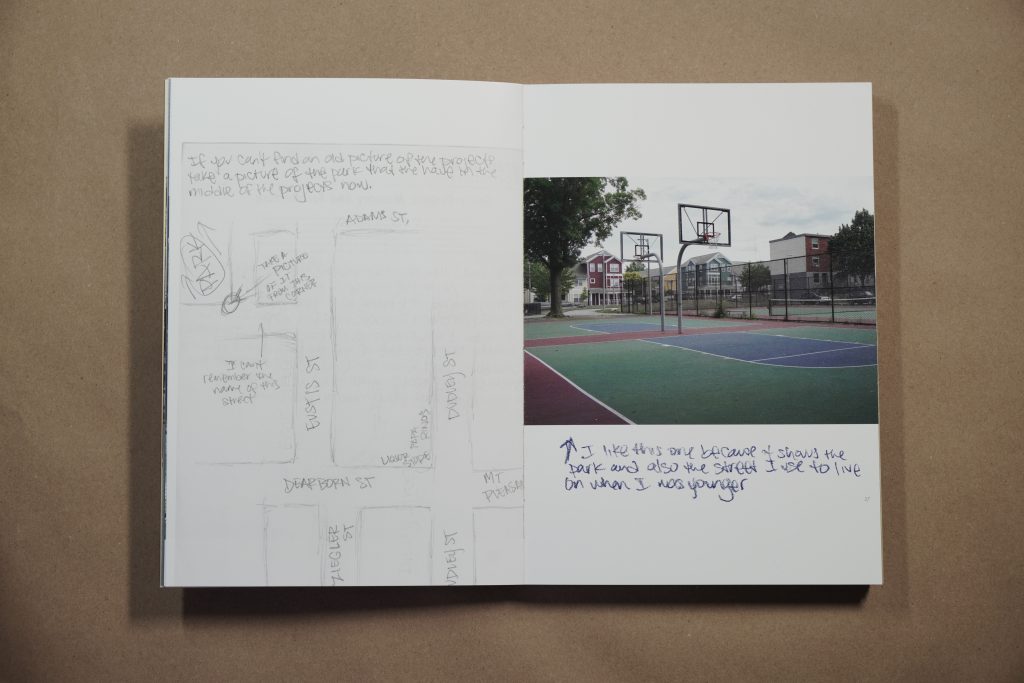 If you can't find an old picture of the projects
take a picture of the park that the have on the
middle of the projects now.
ADAMS ST,
PARK
TAKE A
PICTURE
OF IT
FROM THIS
CORNER
I can't
remember the
name of this
street
EUSTIS ST
DUDLEY ST
LIQUOR STORE
PAPA
GINO'S
DEARBORN ST
MT
PLEASAN
ZIEGLER
ST
UDLEY ST
↑ I like this one because it shows the
park and also the street I use to live
on when I was younger
27